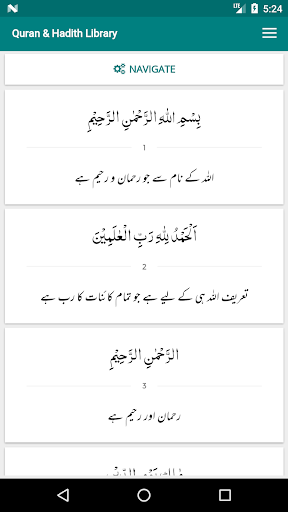 5:24
Quran & Hadith Library
NAVIGATE
بِسْمِ اللّٰهِ الرَّحْمٰنِ الرَّحِيْمِ
1
اللہ کے نام سے جو رحمان و رحیم ہے
اَلْحَمْدُ لِلّٰهِ رَبِّ الْعٰلَمِيْنَ
2
تعریف اللہ ہی کے لیے ہے جو تمام کائنات کا رب ہے
الرَّحْمٰنِ الرَّحِيْمِ
3
رحمان اور رحیم ہے